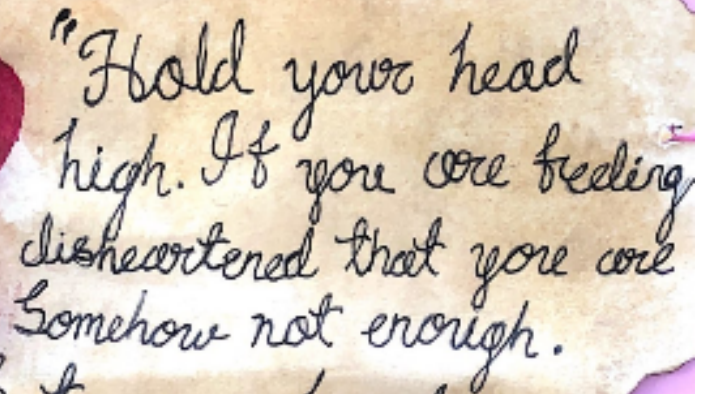 "Hold your head
high. If you are feeling
disheartened that you are
Somehow not enough.